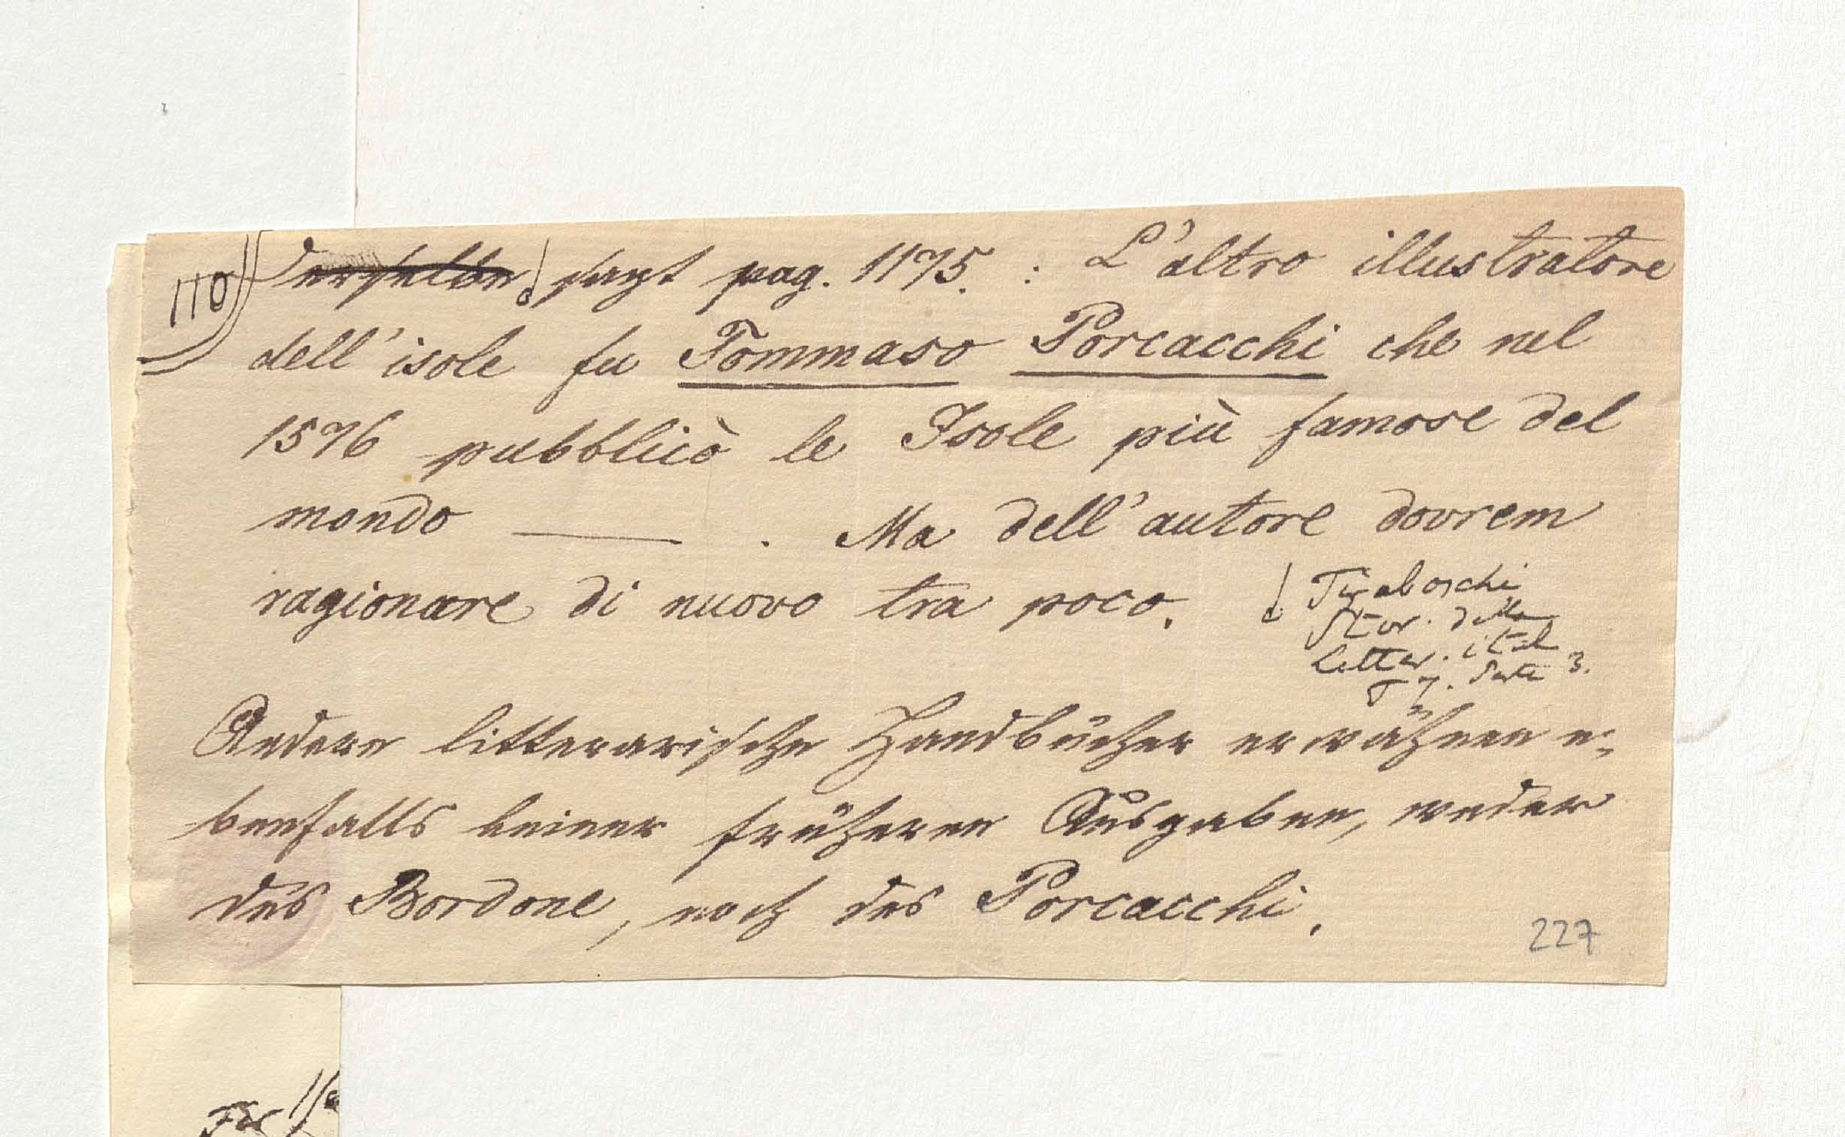 110 Derselbe sagt pag. 1175. : L'altro illustratore
dell'isole fu Tommaso Porcacchi che nel
1576 pubblicò le Isole più famose del
mondo ——— . Ma dell'autore dovrem
ragionare di nuovo tra poco.
Tiraboschi
Stor. della
letter. ital
T 7. Parte 3.
Andere litterarische Handbücher erwähnen e-
benfalls keiner früheren Ausgaben, weder
des Bordone, noch des Porcacchi.
227